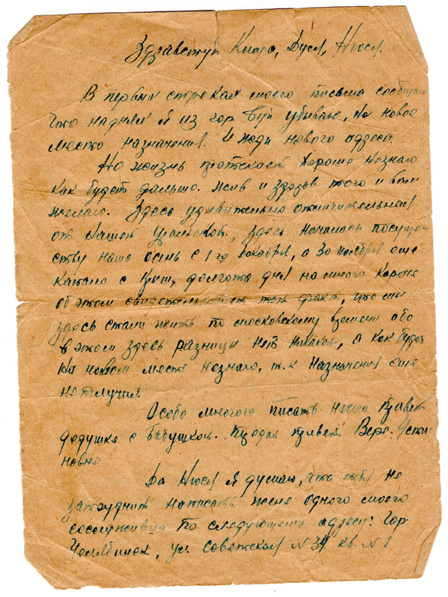 Здравствуй Клава, Дуся, Нюся.
В первых строках моего письма сообщаю
Что на днях я из гор убываю, на новое
место назначения. И жди нового адреса
Но жизнь протекает хорошо незнаю
как будет дальше. Жив и здоров того и вам
желаю. Здесь удивительно
от наших Уральских, здесь началась по
ству наша осень с 1го декабря, а 30 ноября еще
капало с крыш, долгота дня на много короче
об этом свидетельствует тот факт, что мы
здесь стали жить по московскому времени ибо
в этом здесь разницы нет никакой, а как будет
на новом месте незнаю, т.к назначения еще
не получил.
Особо много писать нечего Привет
дедушке с бабушкой. Передай привет Вере
новне
Да Нюся я думаю, что тебя не
затруднит написать жене одного моего
сослуживца по следующему адресу: гор
Челябинск, ул советская N 34 кв. N 1